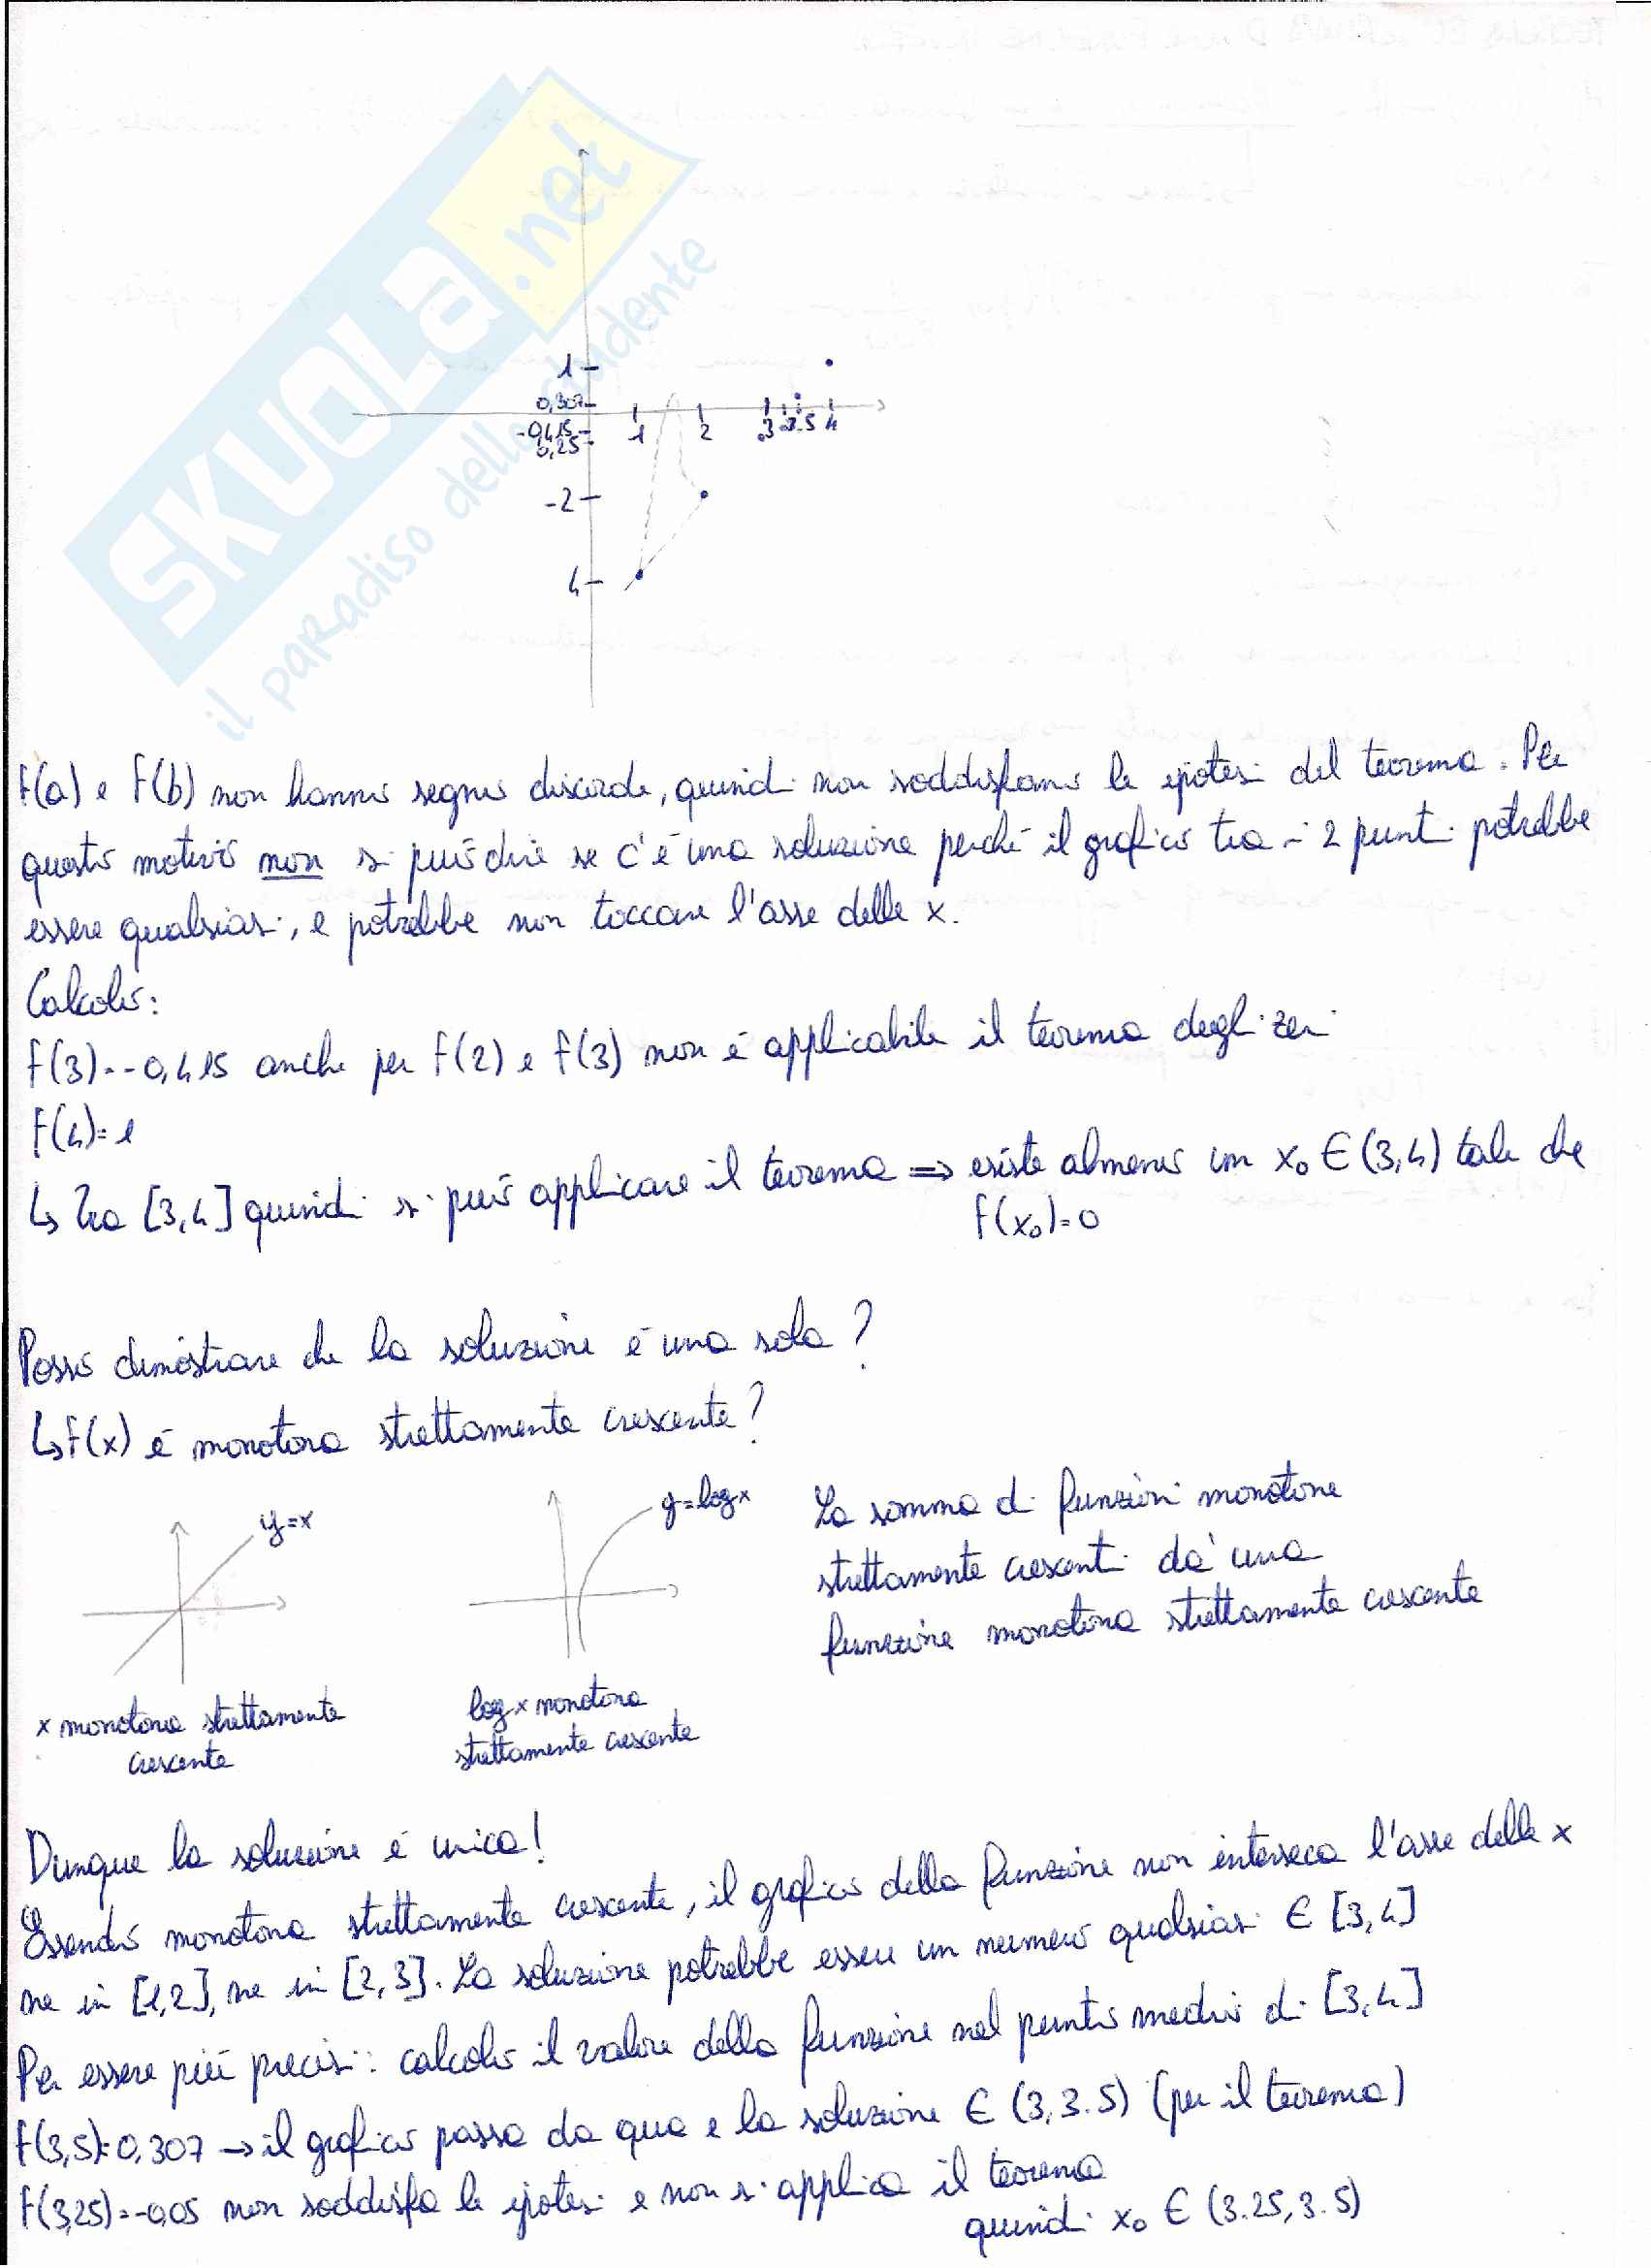 SKUOLA.net
il paradiso dello studente
1
0,307
-0,415
0,25
-2
4
1
2
3
3.5
4
f(a) e f(b) non hanno segno discorde, quindi non soddisfano le ipotesi del teorema. Per
questo motivo non si può dire se c'è una soluzione perché il grafico tra i 2 punti potrebbe
essere qualsiasi, e potrebbe non toccare l'asse delle x.
Calcolo:
f(3)=-0,415 anche per f(2) e f(3) non è applicabile il teorema degli zeri
f(4)=1
↳ Tra [3,4] quindi si può applicare il teorema ⇒ esiste almeno un x₀ ∈ (3,4) tale che
f(x₀)=0
Posso dimostrare che la soluzione è una sola?
↳ f(x) è monotona strettamente crescente?
y=x
y=log x
La somma di funzioni monotone
strettamente crescenti dà una
funzione monotona strettamente crescente
x monotona strettamente
crescente
log x monotona
strettamente crescente
Dunque la soluzione è unica!
Essendo monotona strettamente crescente, il grafico della funzione non interseca l'asse delle x
ne in [1,2], ne in [2,3]. La soluzione potrebbe essere un numero qualsiasi ∈ [3,4]
Per essere più precisi: calcolo il valore della funzione nel punto medio di [3,4]
f(3,5)=0,307 → il grafico passa da qua e la soluzione ∈ (3,3.5) (per il teorema)
f(3,25)=-0,05 non soddisfa le ipotesi e non si applica il teorema
quindi x₀ ∈ (3.25,3.5)